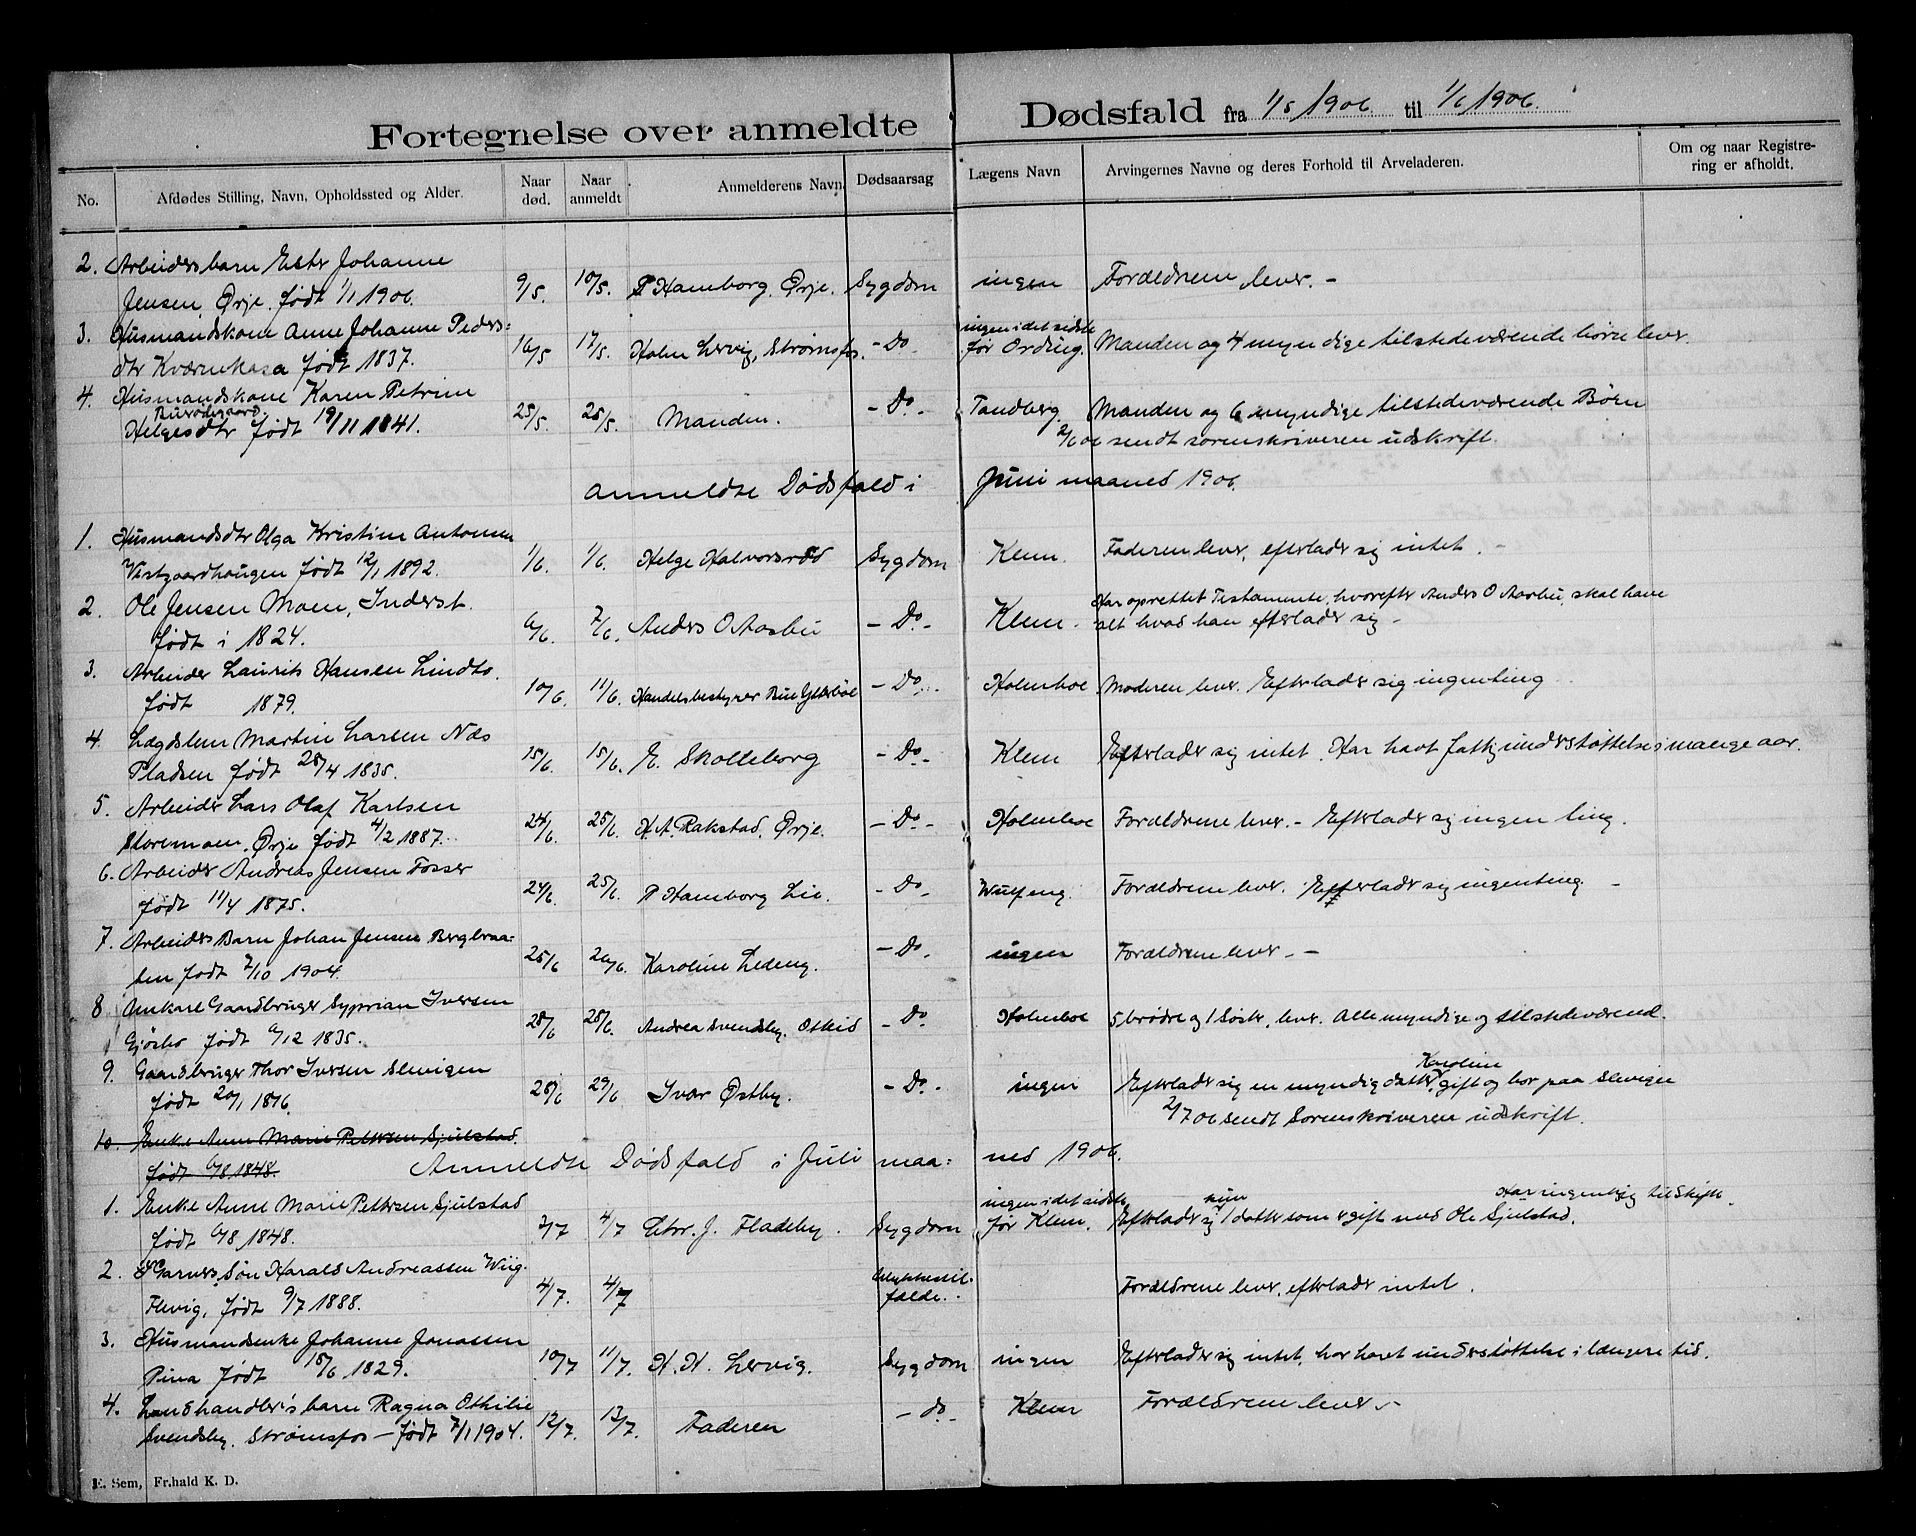 Fortegnelse over anmeldte Dødsfald fra 1/5 1906 til 1/6 1906.
No. Afdødes Stilling, Navn, Opholdssted og Alder. Naar død. Naar anmeldt Anmelderens Navn Dødsaarsag Lægens Navn Arvingernes Navne og deres Forhold til Arveladeren. Om og naar Registrering er afholdt.
2. Arbeidersbarn Ester Johanne
Jensen, Ørje, født 1/1 1906. 9/5. 10/5. P Hamborg, Ørje. Sygdom ingen Forældrene lever. -
3. Husmandskone Anne Johanne Peders= ingen i det sidste
dtr Kværnekasa født 1837. 16/5 17/5. Holm Lervig, Strømsfos. - Do - før Ording. Manden og 4 myndige tilstedeværende børn lever.
4. Husmandskone Karen Petrine
Burødegaard.
Helgesdtr født 19/11 1841. 25/5. 25/5. Manden. - Do - Tandberg. Manden og 6 myndige tilstedeværende Børn
2/6 06 sendt sorenskriveren udskrift.
Anmeldte Dødsfald i Juni maaned 1906.
1. Husmandsdtr Olga Kristine Antonsen
Vestgaardhaugen født 12/1 1892. 1/6. 1/6. Helge Halvorsrød Sygdom Klem. Faderen lever, efterlader sig intet. -
2. Ole Jensen Moen, Inderst. Har oprettet Testamente, hvorefter Anders O Aasbu, skal have
født i 1824. 6/6. 7/6. Anders O Aasbu - Do - Klem. alt hvad han efterlader sig -
3. Arbeider Laurits Hansen Lindto.
født 1879. 10/6. 11/6. Handelsbestyrer Bue Ytterbøl - Do - Holmboe Moderen lever. Efterlader sig ingenting
4. Lægdslem Martin Larsen Næs
Pladsen født 28/4 1835. 15/6. 15/6. E. Skolleborg - Do - Klem Efterlader sig intet. Har havt fattigunderstøttelse i mange aar.
5. Arbeider Lars Olaf Karlsen
Storemoen, Ørje født 4/2 1887. 24/6. 25/6. H. A. Rakstad, Ørje. - Do - Holmboe Forældrene lever. - Efterlader sig ingen ting.
6. Arbeider Andreas Jensen Fosser
født 11/4 1875. 24/6. 25/6. P Hamborg Lie. - Do - Wulfeng. Forældrene lever. Efterlader sig ingenting. -
7. Arbeiders Barn Johan Jensen Bergbraa=
ten født 2/10 1904. 25/6 26/6. Karoline Ledeng. - Do - ingen Forældrene lever. -
8 Unkarl Gaardbruger Syprian Iversen
Gjøsbo født 6/12 1835. 28/6 28/6. Andrea Svendsby, Otheid - Do - Holmboe 5 brødre og 1 Søster, lever. Alle myndige og tilstedeværend.
9. Gaardbruger Thor Iversen Slevigen Karoline
født 20/1 1816. 28/6 29/6 Ivar Østby. - Do - ingen Efterlader sig en myndig datter, gift og bor paa Slevigen
2/7 06 sendt Sorenskriveren udskrift.
10. Enke Anne Marie Pettersen Sjulstad.
født 6/8 1848. Anmeldte Dødsfald i Juli maa= ned 1906.
1. Enke Anne Marie Pettersen Sjulstad ingen i det sidste kun Har ingenting til Skifte.
født 6/8 1848. 3/7 4/7 Chr. J. Fladeby. Sygdom før Klem. Efterlader sig 1 datter som er gift med Ole Sjulstad.
2. Garvers Søn Harald Andreassen Wiig. Ulykkestil=
Flevig, født 9/7 1888. 4/7. 4/7 fælde. Forældrene lever, efterlader intet.
3. Husmandsenke Johanne Jonassen
Pina født 18/6 1829. 10/7 11/7. H. H. Lervig. Sygdom ingen Efterlader sig intet, har havt understøttelse i længere tid.
4. Landhandler's barn Ragna Othilie
Svendsby. Strømsfos - født 7/1 1904. 12/7. 13/7. Faderen - do - Klem Forældrene lever -
E. Sem, Fr.hald K. D.